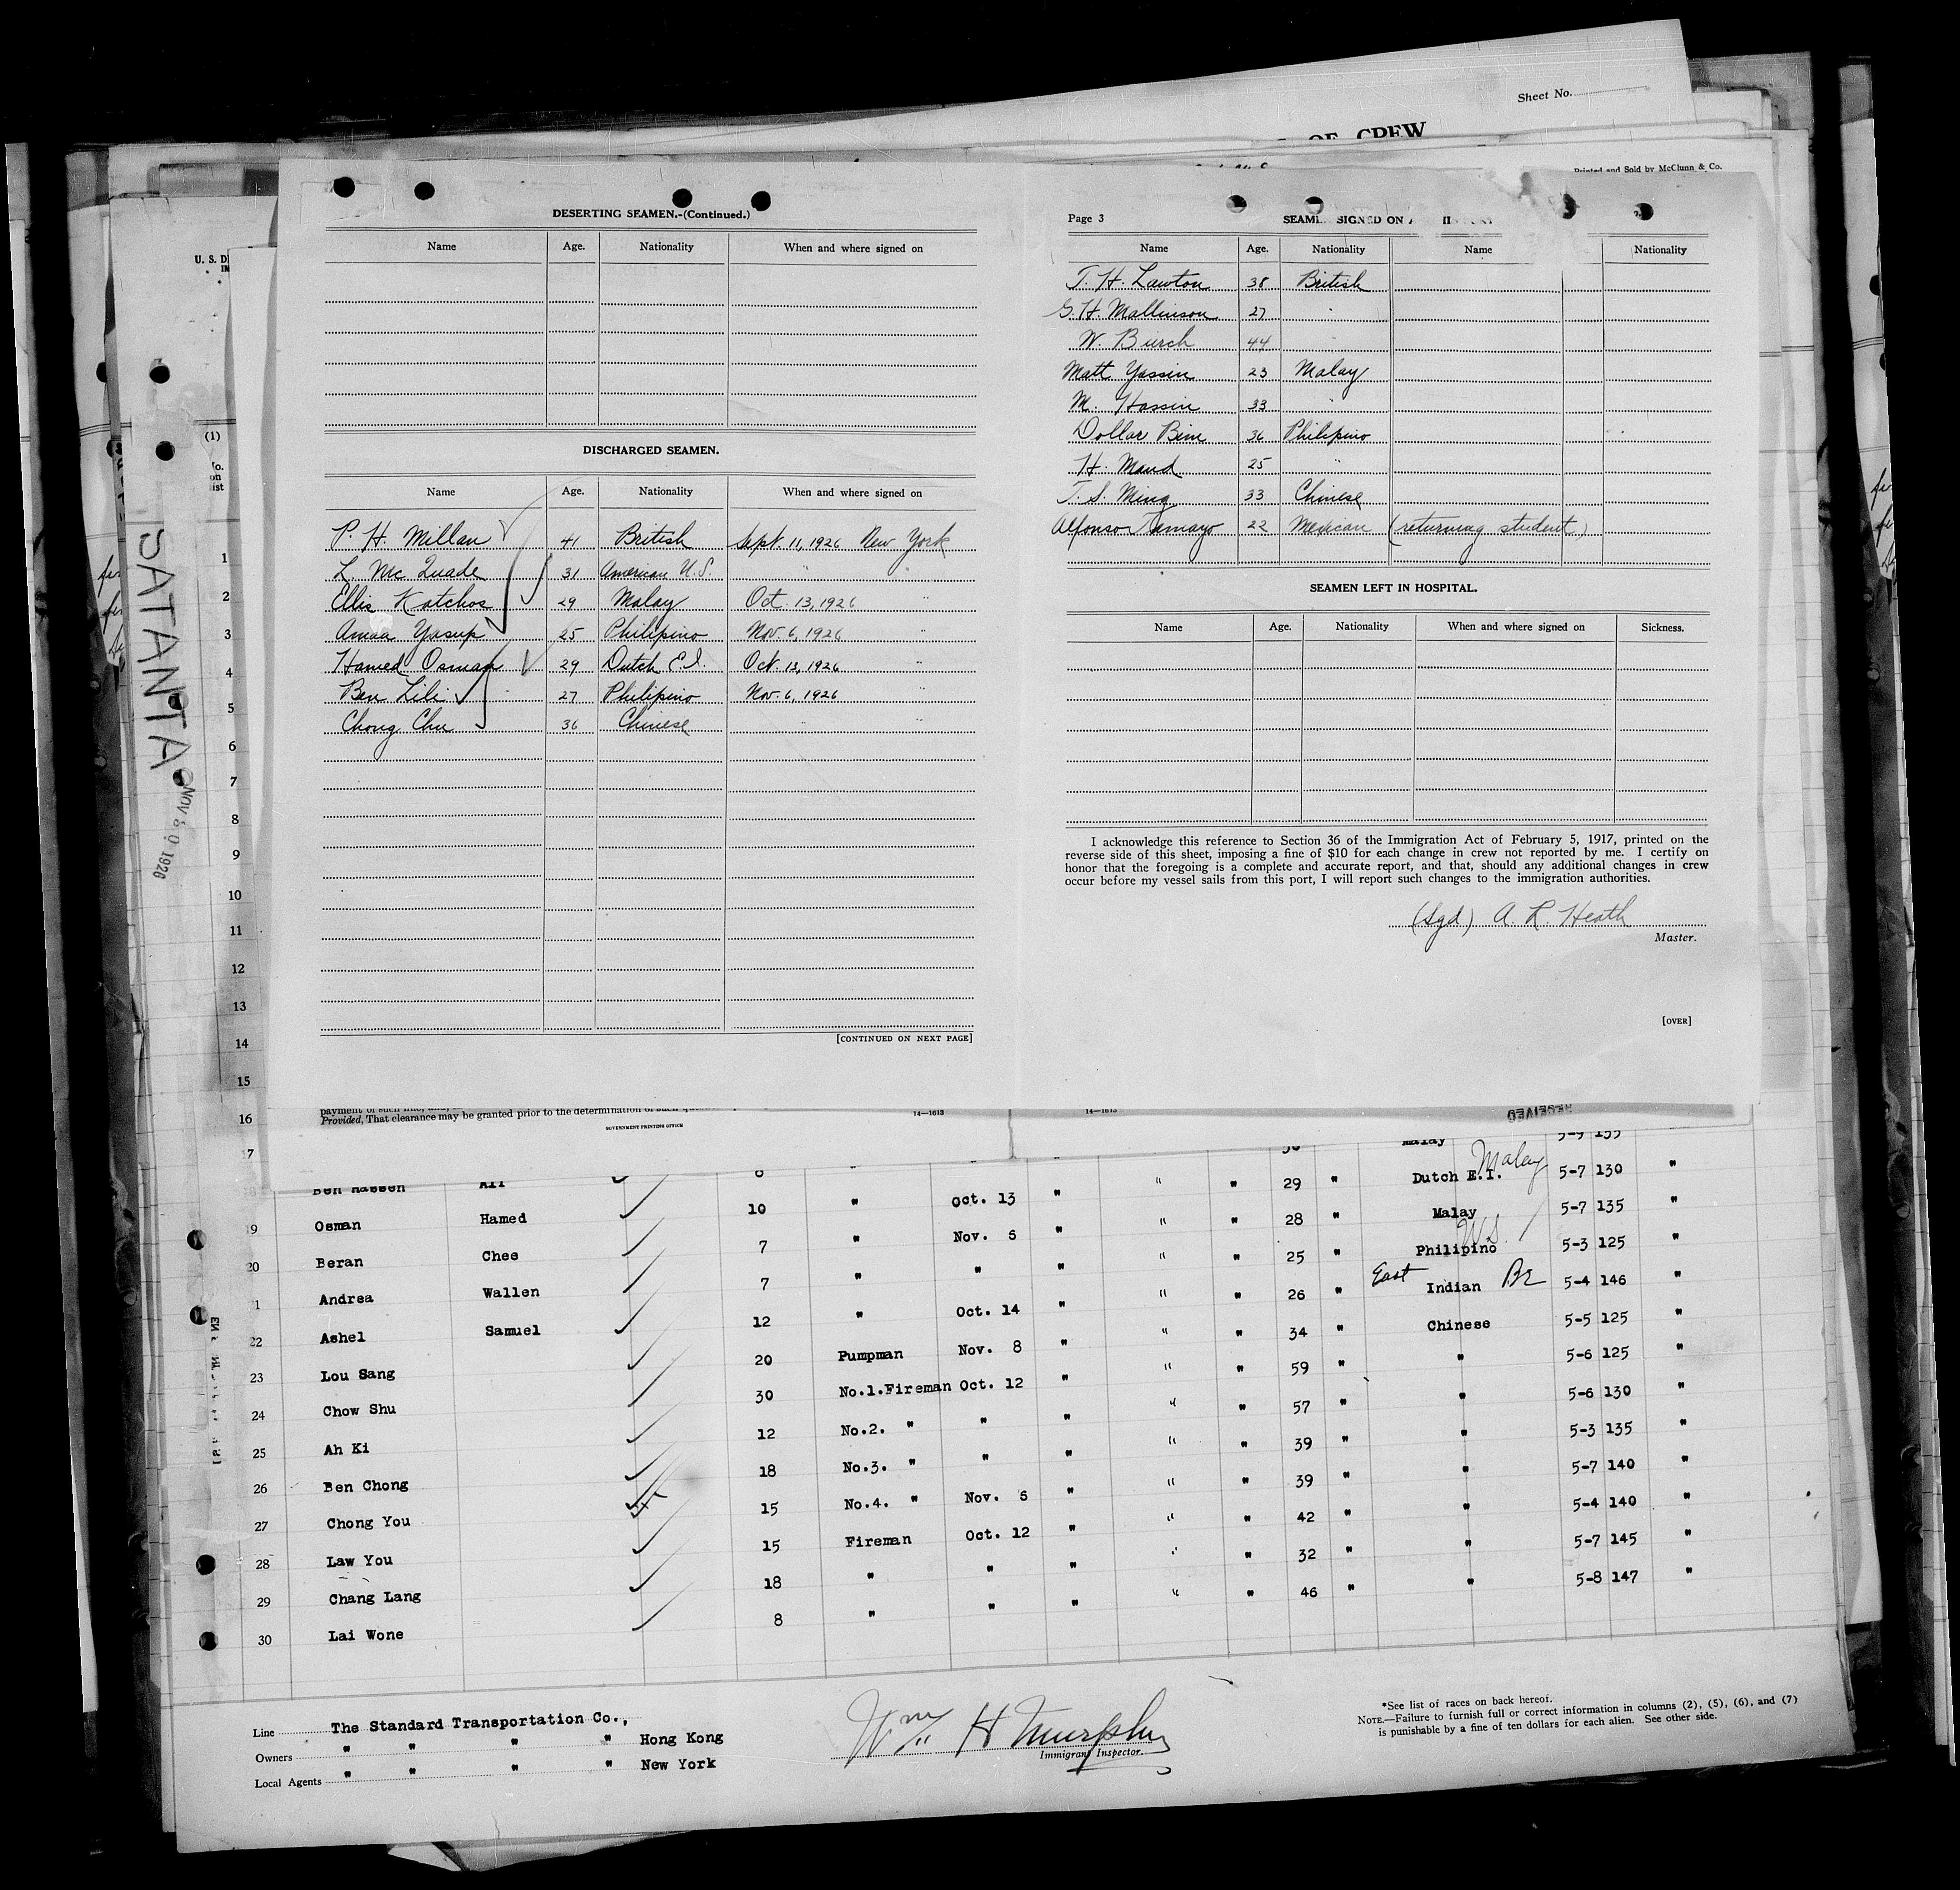 Sheet No.
OF CREW
Printed and Sold by McClunn & Co.
U. S. D
IM
(1)
o.
on
ist
SATANTA
NOV 30 1926
DESERTING SEAMEN.-(Continued.)
Name Age. Nationality When and where signed on
DISCHARGED SEAMEN.
Name Age. Nationality When and where signed on
P. H. Millan 41 British Sept. 11, 1926 New York
L. Mc Quade 31 American U.S. " "
Ellis Katchos 29 Malay Oct. 13, 1926 "
Amaa Yasup 25 Philipino Nov. 6, 1926 "
Hamed Osman 29 Dutch E.I. Oct. 13, 1926 "
Ben Lili 27 Philipino Nov. 6, 1926 "
Chong Chu 36 Chinese " "
[CONTINUED ON NEXT PAGE]
Page 3 SEAM SIGNED ON
Name Age. Nationality Name Nationality
T. H. Lawton 38 British
G. H. Mallinson 27 "
W. Burch 44 "
Matt Yassin 23 Malay
M. Hassin 33 "
Dollar Bim 36 Philipino
H. Maud 25 "
T. S. Ming 33 Chinese
Alfonso Tamayo 22 Mexican (returning student)
SEAMEN LEFT IN HOSPITAL.
Name Age. Nationality When and where signed on Sickness.
I acknowledge this reference to Section 36 of the Immigration Act of February 5, 1917, printed on the
reverse side of this sheet, imposing a fine of $10 for each change in crew not reported by me. I certify on
honor that the foregoing is a complete and accurate report, and that, should any additional changes in crew
occur before my vessel sails from this port, I will report such changes to the immigration authorities.
(Sgd) A. L. Heath
Master.
[OVER]
1
2
3
4
5
6
7
8
9
10
11
12
13
14
15
16
17
payment of such fine,
Provided, That clearance may be granted prior to the determination of such
GOVERNMENT PRINTING OFFICE
14—1613
14—1613
RECEIVED
Malay 5-9 155
18 Ben Hassen Ali 8 " " " 29 " Dutch E.I. Malay 5-7 130 "
19 Osman Hamed 10 " Oct. 13 " " " 28 " Malay 5-7 135 "
20 Beran Chee 7 " Nov. 6 " " " 25 " Philipino W.S. 5-3 125 "
21 Andrea Wallen 7 " " " " " 26 " East Indian BE 5-4 146 "
22 Ashel Samuel 12 " Oct. 14 " " " 34 " Chinese 5-5 125 "
23 Lou Sang 20 Pumpman Nov. 8 " " " 59 " " 5-6 125 "
24 Chow Shu 30 No.1.Fireman Oct. 12 " " " 57 " " 5-6 130 "
25 Ah Ki 12 No.2. " " " " " 39 " " 5-3 135 "
26 Ben Chong 18 No.3. " " " " " 39 " " 5-7 140 "
27 Chong You 15 No.4. " Nov. 6 " " " 42 " " 5-4 140 "
28 Law You 15 Fireman Oct. 12 " " " 32 " " 5-7 145 "
29 Chang Lang 18 " " " " " 46 " " 5-8 147 "
30 Lai Wone 8 " " "
Line The Standard Transportation Co.,
Owners " " " " Hong Kong
Local Agents " " " " New York
Wm H Murphy
Immigrant Inspector.
*See list of races on back hereof.
NOTE.—Failure to furnish full or correct information in columns (2), (5), (6), and (7)
is punishable by a fine of ten dollars for each alien. See other side.